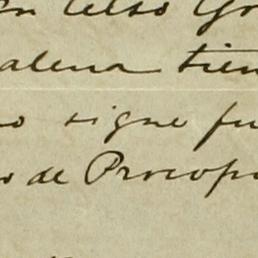 on Celso Gr
alena tien
no sigue fu
o de Procop